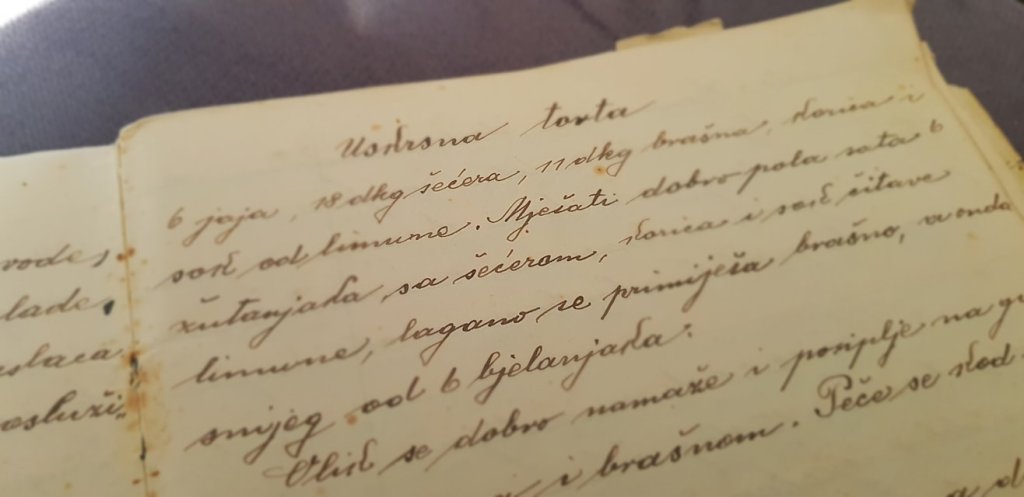 rode,
lade,
aslaca
osluži.
Uskrsna torta
6 jaja, 18 dkg šećera, 11 dkg brašna, korica i
sok od limune. Mješati dobro pola sata 6
žutanjaka sa šećerom, korica i sok čitave
limune, lagano se primiješa brašno, a onda
snijeg od 6 bjelanjaka.
Oblik se dobro namaže i posiplje na
i brašnom. Peče se kod